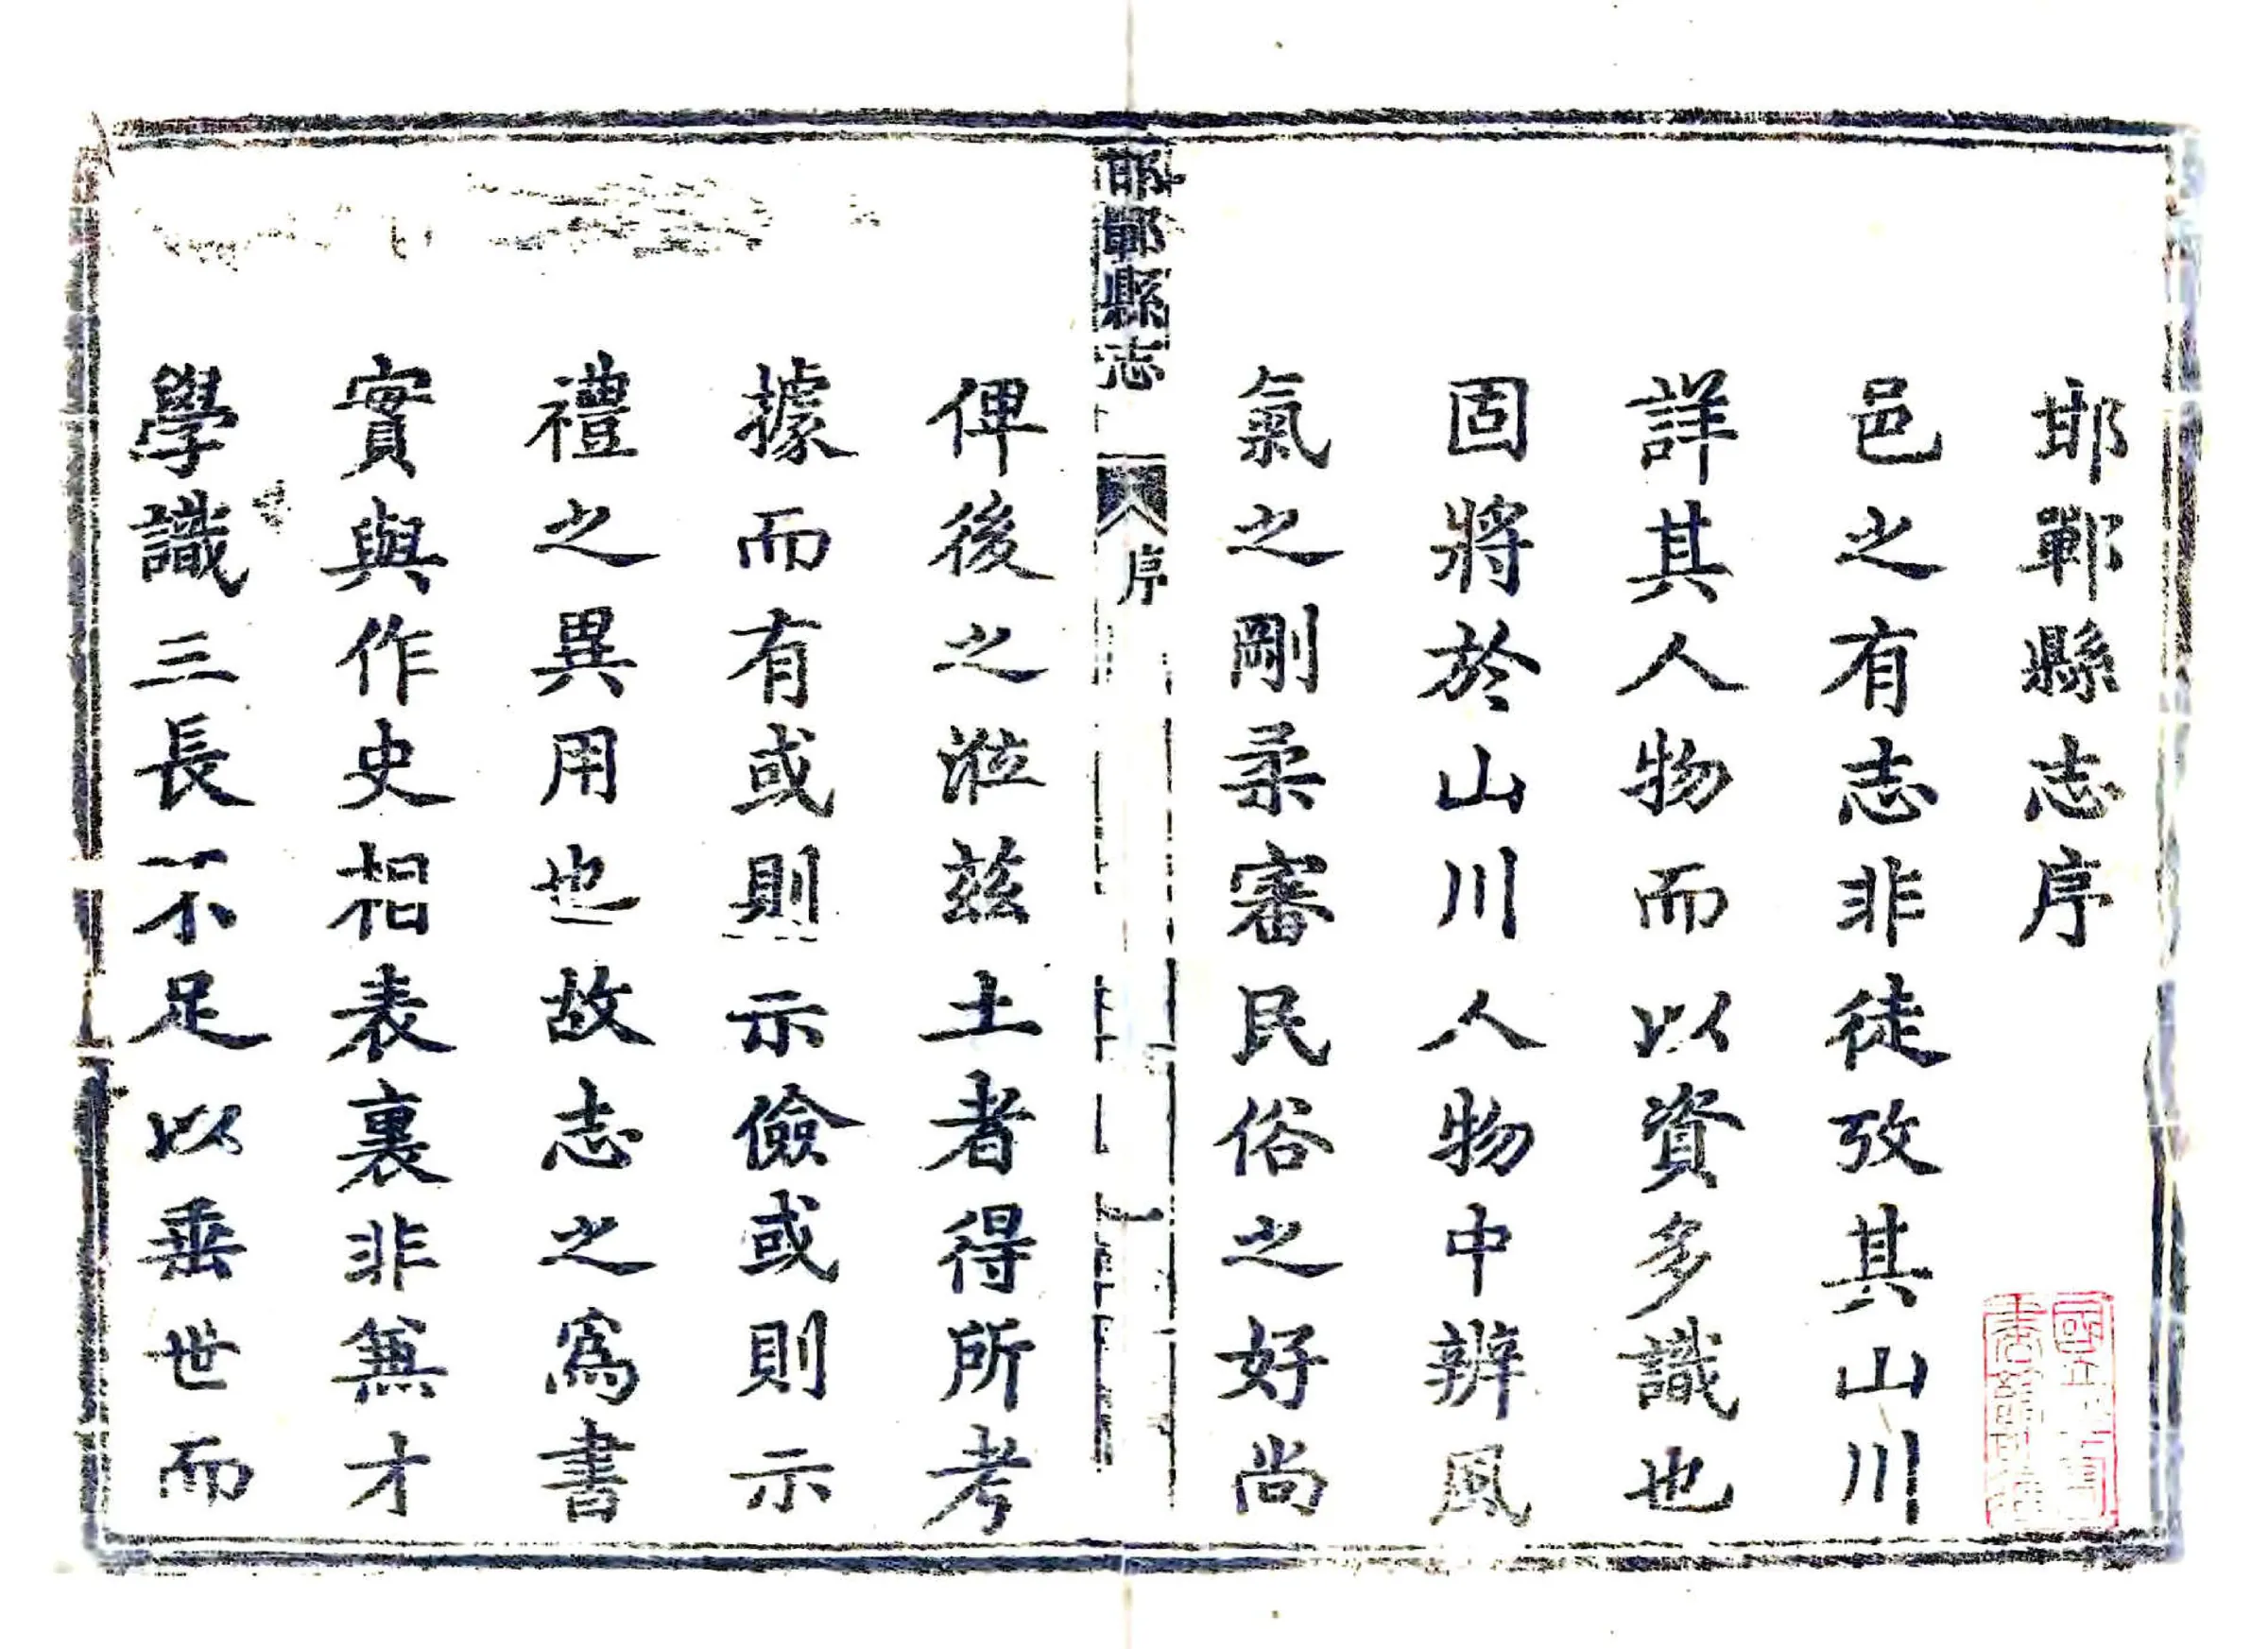 邯鄲縣志序
邑之有志非徒攷其山川
詳其人物而以資多識也
固將於山川人物中辨風
氣之剛柔審民俗之好尚
邯鄲縣志
序
一
俾後之涖茲土者得所考
據而有或則示儉或則示
禮之異用也故志之爲書
實與作史相表裏非無才
學識三長不足以垂世而